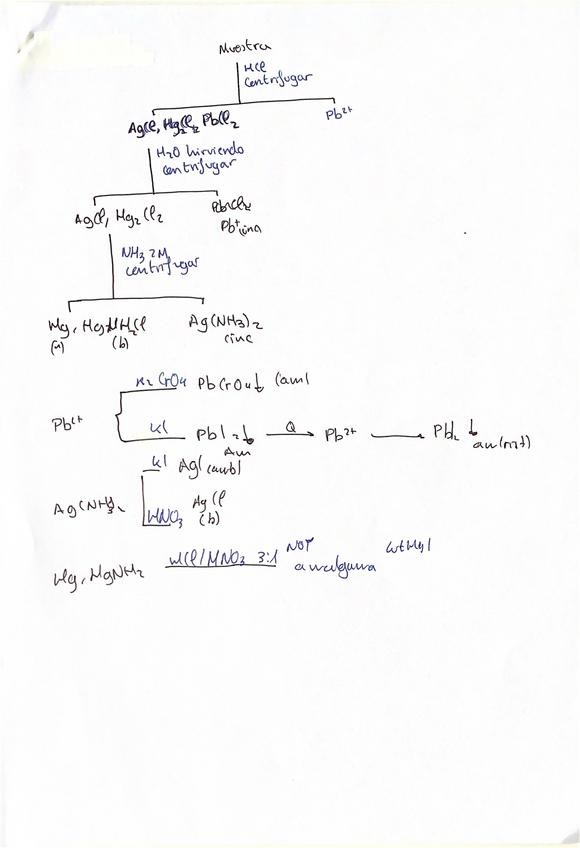 Muestra
HCl
Centrifugar
AgCl, Hg2Cl2 PbCl2 Pb2+
H2O hirviendo
centrifugar
AgCl, Hg2Cl2
NH3 2M
centrifugar
Hg, HgNH2Cl Ag(NH3)2
(n) (b) cinc
K2CrO4 PbCrO4↓ (aml
Pb2+
KI PbI2↓ Q Pb2+ PbI2 ↓
am
KI AgI (ambl)
Ag(NH3)2
HNO3 AgCl
(b)
Hg, HgNH2 HCl/HNO3 3:1 amalgama